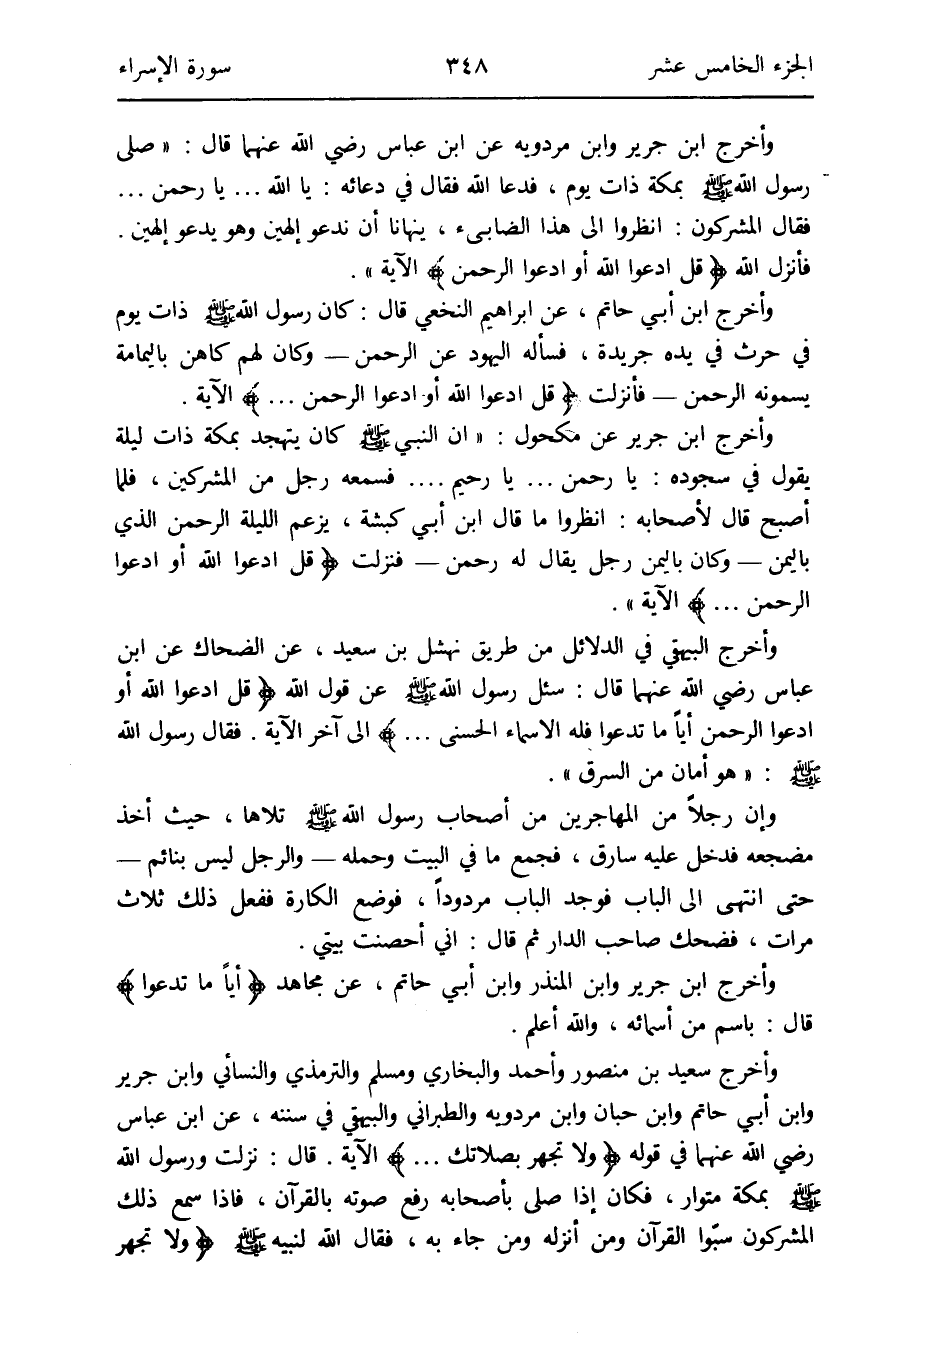 الجزء الخامس عشر ٣٤٨ سورة الإسراء
وأخرج ابن جرير وابن مردويه عن ابن عباس رضي الله عنهما قال : « صلى
رسول الله ﷺ بمكة ذات يوم ، فدعا الله فقال في دعائه : يا الله ... يا رحمن ...
فقال المشركون : انظروا الى هذا الضابىء ، ينهانا أن ندعو إلهين وهو يدعو إلهين .
فأنزل الله ﴿ قل ادعوا الله أو ادعوا الرحمن ﴾ الآية » .
وأخرج ابن أبي حاتم ، عن ابراهيم النخعي قال : كان رسول الله ﷺ ذات يوم
في حرث في يده جريدة ، فسأله اليهود عن الرحمن — وكان لهم كاهن باليمامة
يسمونه الرحمن — فأنزلت ﴿ قل ادعوا الله أو ادعوا الرحمن ... ﴾ الآية .
وأخرج ابن جرير عن مكحول : « ان النبي ﷺ كان يتهجد بمكة ذات ليلة
يقول في سجوده : يا رحمن ... يا رحيم .... فسمعه رجل من المشركين ، فلما
أصبح قال لأصحابه : انظروا ما قال ابن أبي كبشة ، يزعم الليلة الرحمن الذي
باليمن — وكان باليمن رجل يقال له رحمن — فنزلت ﴿ قل ادعوا الله أو ادعوا
الرحمن ... ﴾ الآية » .
وأخرج البيهقي في الدلائل من طريق نهشل بن سعيد ، عن الضحاك عن ابن
عباس رضي الله عنهما قال : سئل رسول الله ﷺ عن قول الله ﴿ قل ادعوا الله أو
ادعوا الرحمن أياً ما تدعوا فله الاسماء الحسنى ... ﴾ الى آخر الآية . فقال رسول الله
ﷺ : « هو أمان من السرق » .
وإن رجلاً من المهاجرين من أصحاب رسول الله ﷺ تلاها ، حيث أخذ
مضجعه فدخل عليه سارق ، فجمع ما في البيت وحمله — والرجل ليس بنائم —
حتى انتهى الى الباب فوجد الباب مردوداً ، فوضع الكارة ففعل ذلك ثلاث
مرات ، فضحك صاحب الدار ثم قال : اني أحصنت بيتي .
وأخرج ابن جرير وابن المنذر وابن أبي حاتم ، عن مجاهد ﴿ أياً ما تدعوا ﴾
قال : باسم من أسمائه ، والله أعلم .
وأخرج سعيد بن منصور وأحمد والبخاري ومسلم والترمذي والنسائي وابن جرير
وابن أبي حاتم وابن حبان وابن مردويه والطبراني والبيهقي في سننه ، عن ابن عباس
رضي الله عنهما في قوله ﴿ ولا تجهر بصلاتك ... ﴾ الآية . قال : نزلت ورسول الله
ﷺ بمكة متوار ، فكان إذا صلى بأصحابه رفع صوته بالقرآن ، فاذا سمع ذلك
المشركون سبّوا القرآن ومن أنزله ومن جاء به ، فقال الله لنبيه ﷺ ﴿ ولا تجهر